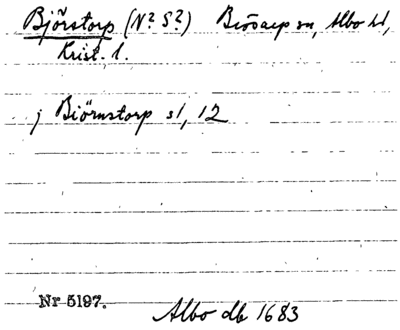 Björstorp (N? S?) Brösarp sn, Albo hd,
Krist. l.
j Biörnstorp sl, 12
Nr 5197.
Albo db 1683